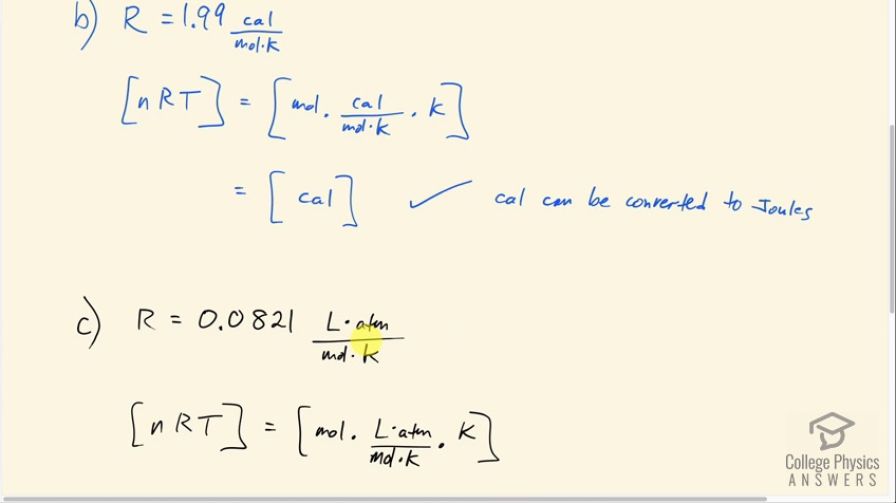 b) R = 1.99 cal/mol·K
[nRT] = [mol · cal/mol·K · K]
= [cal] ✓ cal can be converted to Joules
c) R = 0.0821 L·atm/mol·K
[nRT] = [mol · L·atm/mol·K · K]
College Physics
ANSWERS